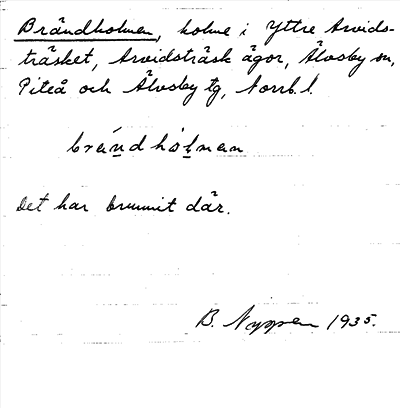 Brändholmen, holme i Yttre Arvids-
träsket, Arvidsträsk ägor, Älvsby sn,
Piteå och Älvsby tg, Norrb. l.
brándhòlman
Det har brunnit där.
B. Nyppen 1935.